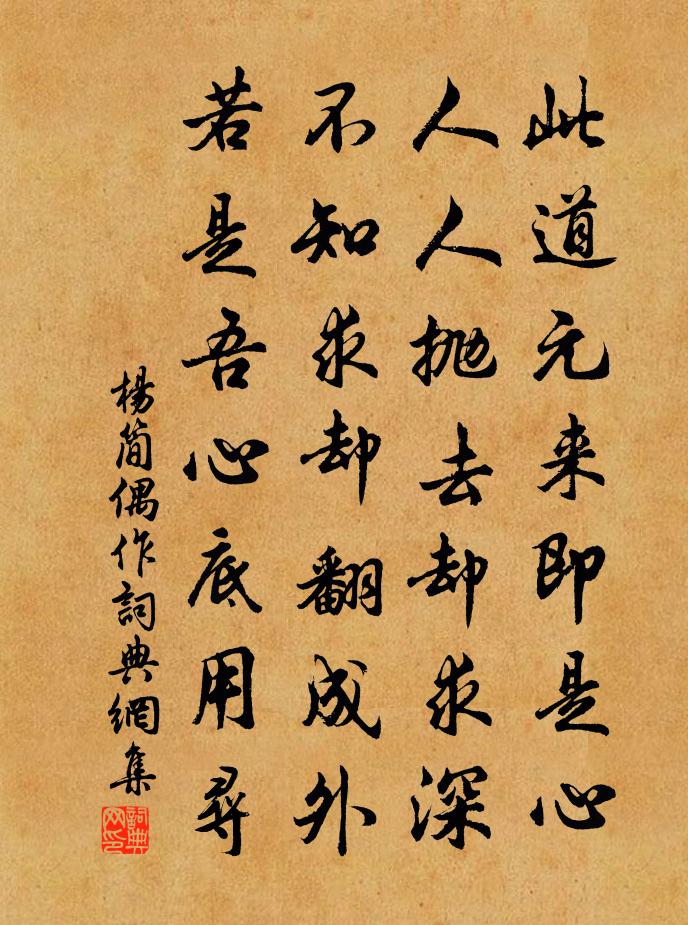 此道元来即是心
人人抛去却求深
不知求却翻成外
若是吾心底用尋
楊簡偶作詞典網集
詞典网印